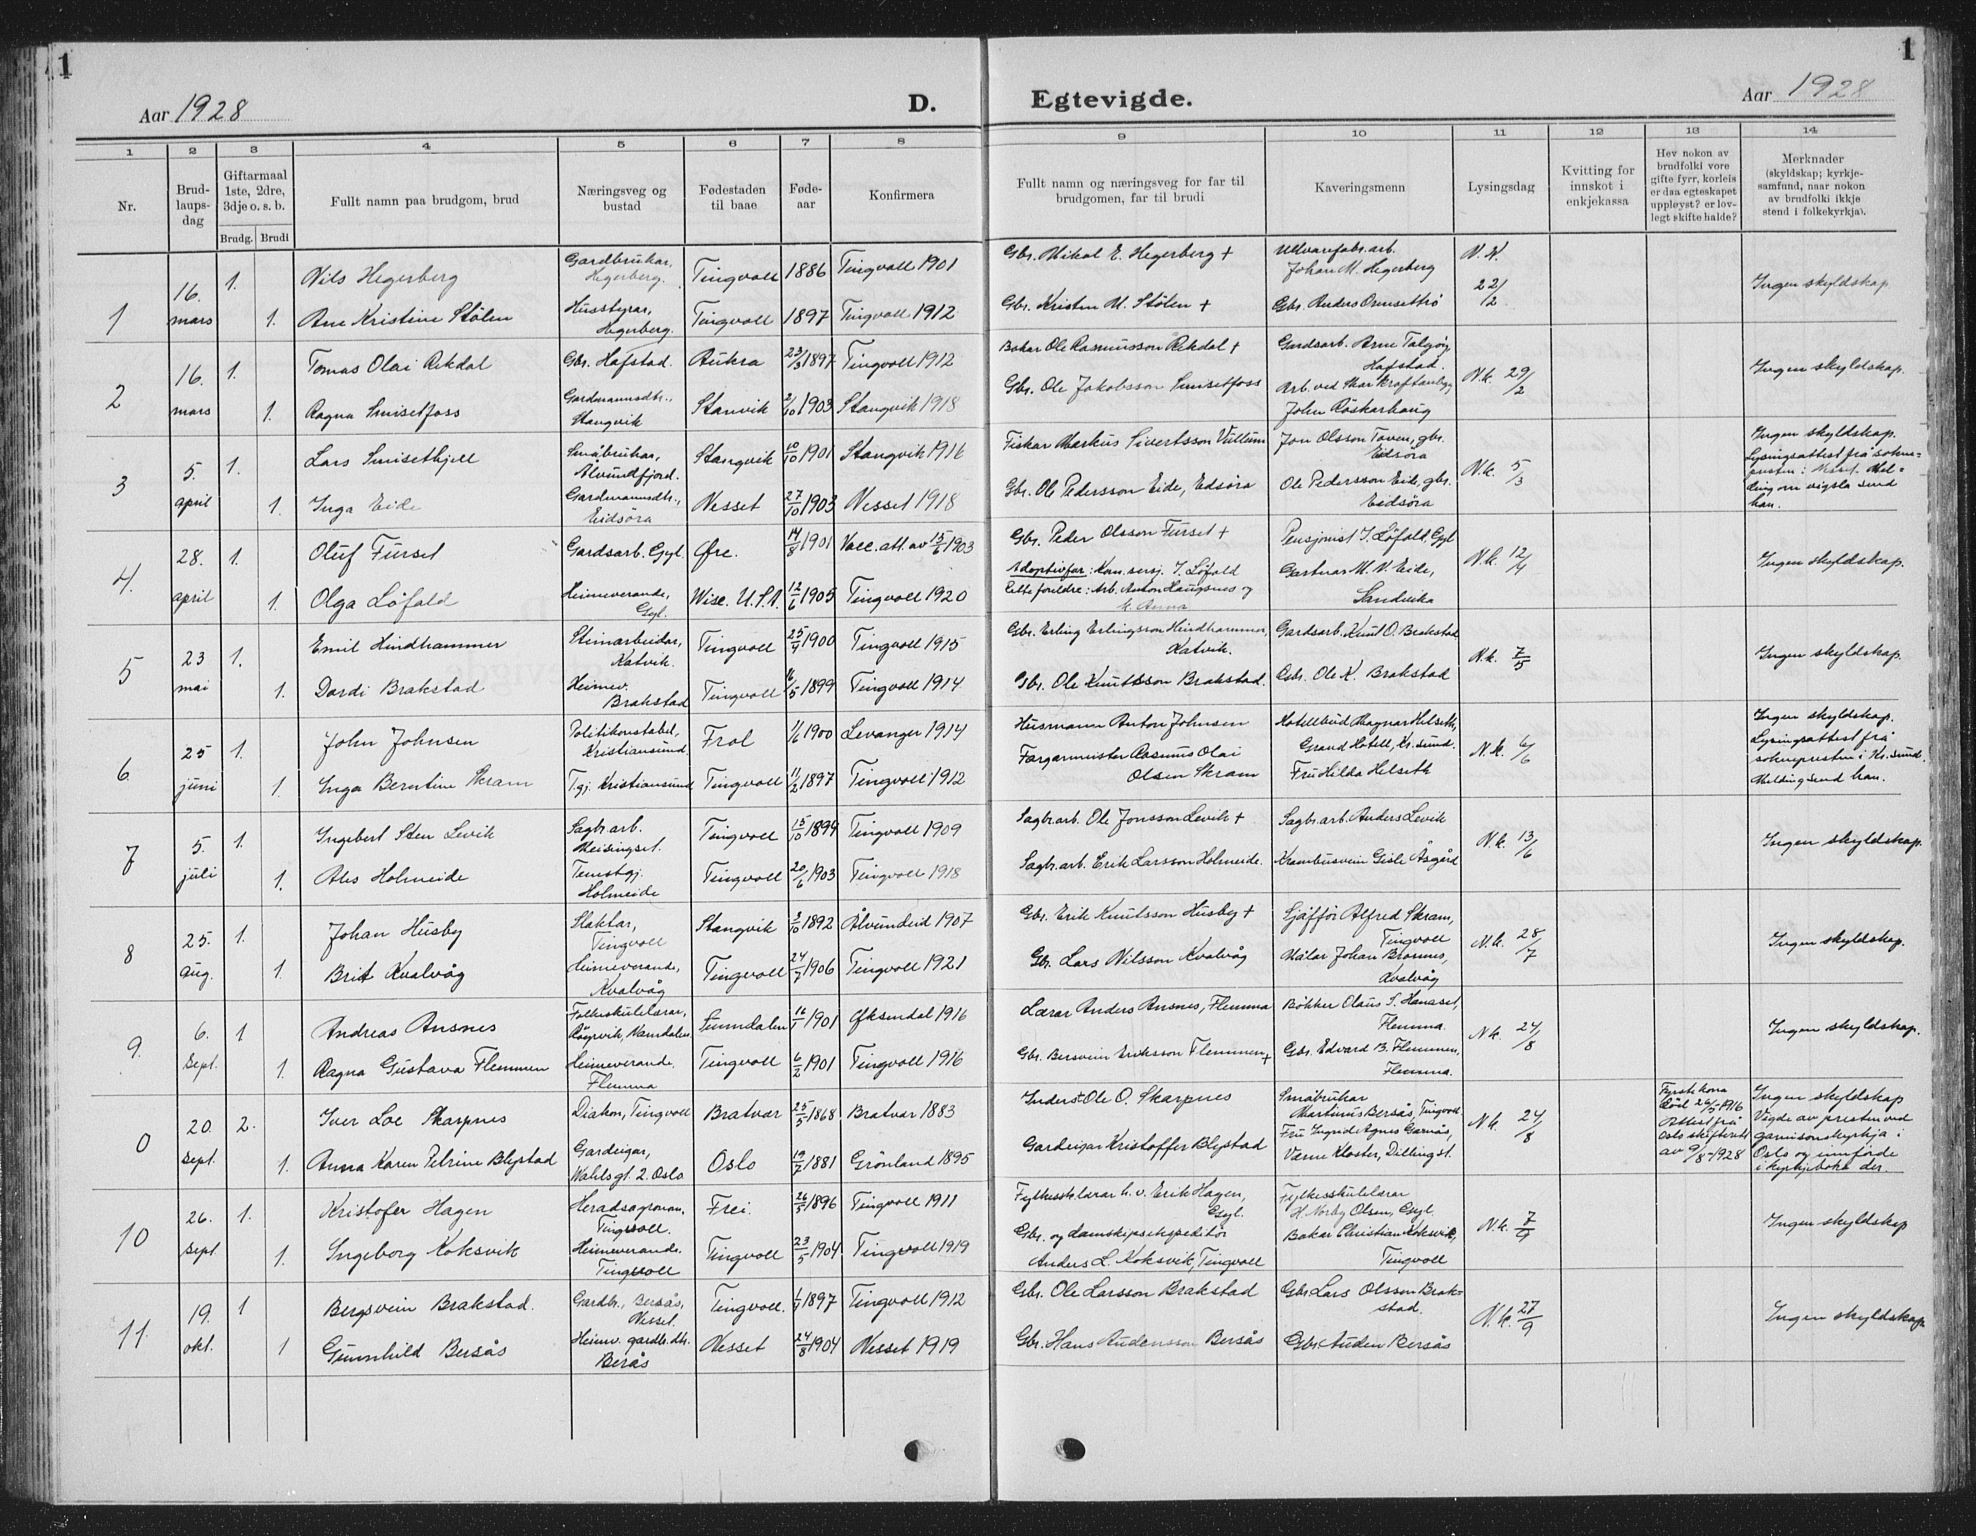 1
1
Aar 1928
D.
Egtevigde.
Aar 1928
1 2 3 4 5 6 7 8 9 10 11 12 13 14
Nr.
Brud-
laups-
dag
Giftarmaal
1ste, 2dre,
3dje o. s. b.
Brudg. Brudi
Fullt namn paa brudgom, brud
Næringsveg og
bustad
Fødestaden
til baae
Føde-
aar
Konfirmera
Fullt namn og næringsveg for far til
brudgomen, far til brudi
Kaveringsmenn
Lysingsdag
Kvitting for
innskot i
enkjekassa
Hev nokon av
brudfolki vore
gifte fyrr, korleis
er daa egteskapet
uppløyst? er lov-
legt skifte halde?
Merknader
(skyldskap; kyrkje-
samfund, naar nokon
av brudfolki ikkje
stend i folkekyrkja).
1 16. mars
1. Nils Hegerberg Gardbrukar, Hegerberg. Tingvoll 1886 Tingvoll 1901 Gbr. Mikal E. Hegerberg + Ullvarefabr.arb. Johan M. Hegerberg N.K. 22/2 Ingen skyldskap
1. Ane Kristine Stölen Husstyrar, Hegerberg. Tingvoll 1897 Tingvoll 1912 Gbr. Kristen U. Stölen + Gbr. Anders Ormsettrö
2 16. mars
1. Tomas Olai Rekdal Gbr. Hafstad. Aukra 23/3 1897 Tingvoll 1912 Bakar Ole Rasmusson Rekdal + Gardsarb. Arne Talgöy, Hafstad. N.k. 29/2 Ingen skyldskap.
1. Ragna Smisetfoss Gardmannsdtr., Stangvik Stanvik 2/10 1903 Stangvik 1918 Gbr. Ole Jakobsson Smisetfoss Arb. ved Skar kraftanlegg, John Röskarhaug
3 5. april
1. Lars Smisethjell Småbrukar, Ålvundfjord. Stangvik 10/10 1901 Stangvik 1916 Fiskar Markus Sivertsson Vullum Jon Olsson Toven, gbr. Eidsöra N.k. 5/3 Ingen skyldskap. Lysingsattest frå Meldingom vigsla send han.
1. Inga Eide Gardmannsdtr., Eidsöra Nesset 27/10 1903 Nesset 1918 Gbr. Ole Pedersson Eide, Eidsöra Ole Pedersson Eide, gbr. Eidsöra
4. 28. april
1. Oluf Furset Gardsarb. Gyl. Øre. 14/8 1901 Vacc.att. av 15/6 1903 Gbr. Peder Olsson Furset + Pensjonist I. Löfald, Gyl N.k. 12/4 Ingen skyldskap.
1. Olga Löfald Heimeverande, Gyl. Wisc. U.S.A. 12/6 1905 Tingvoll 1920 Adoptivfar: Kan. sersj. I. Löfald Rette foreldre: Arb. Anton Haugsnes og k. Anna Gartnar M. V. Eide, Sandvika
5 23 mai
1. Emil Hindhammer Steinarbeidar, Katvik. Tingvoll 25/9 1900 Tingvoll 1915 Gbr. Erling Erlingsson Hindhammer, Katvik. Gardsarb. Knut O. Brakstad N.k. 7/5 Ingen skyldskap.
1. Dordi Brakstad Heimev. Brakstad Tingvoll 16/5 1899 Tingvoll 1914 Gbr. Ole Knutsson Brakstad. Gbr. Ole K. Brakstad
6 25 juni
1. John Johnsen Politikonstabel, Kristiansund Frol 11/6 1900 Levanger 1914 Husmann Anton Johnsen Hotellbud Magnar Helseth, Grand Hotell, Kr.sund. N.k. 6/6 Ingen skyldskap. Lysingsattest frå sokneprestern i Kr.sund. Melding send han.
1. Inga Berntine Skram T.gj. Kristiansund Tingvoll 11/2 1897 Tingvoll 1912 Fargarmeister Rasmus Olai Olsen Skram Fru Hilda Helseth
7 5. juli
1. Ingebert Sten Levik Sagbr.arb. Meisingset. Tingvoll 15/10 1894 Tingvoll 1909 Sagbr.arb. Ole Jonsson Levik + Sagbr.arb. Anders Levik N.k. 13/6 Ingen skyldskap.
1. Ales Holmeide Tenestgj. Holmeide Tingvoll 20/6 1903 Tingvoll 1918 Sagbr.arb. Erik Larsson Holmeide. Krambusvein Gisle Åsgård
8 25. aug.
1. Johan Husby Slaktar, Tingvoll Stangvik 3/10 1892 Ålvundeid 1907 Gbr. Erik Knutsson Husby + Sjåffør Alfred Skram, Tingvoll N.k. 28/7 Ingen skyldskap.
1. Brit Kvalvåg Heimeverande, Kvalvåg Tingvoll 24/7 1906 Tingvoll 1921 Gbr. Lars Nilsson Kvalvåg Målar Johan Kvalvåg
9. 6. Sept.
1 Andreas Ansnes Folkeskulelærar, Namdalen Sunndalen 16/1 1901 Öksendal 1916 Lærar Anders Ansnes, Flemma Bökker Olaus S. Hanaset, Flemma. N.k. 24/8 Ingen skyldskap.
1. Ragna Gustava Flemmen Heimeverande. Flemma Tingvoll 6/2 1901 Tingvoll 1916 Gbr. Bersvein Eriksson Flemmen + Gbr. Edvard B. Flemmen, Flemma.
0 20. Sept.
2. Iver Loe Skarpnes Diakon, Tingvoll Bratvær 25/5 1868 Bratvær 1883 Inderst Ole O. Skarpnes Småbrukar Martinus Bersås, Tingvoll N.k. 24/8 Fyrste kona död 26/5-1916 Attest frå Oslo skifterett av 9/8-1928 Ingen skyldskap Vigde av presten ved garnisonskyrkja i Oslo og innförde i kyrkjeboka der.
1. Anna Karen Petrine Blystad Gardeigar, Wahlsgt. 2. Oslo Oslo 19/7 1881 Grönland 1895 Gardeigar Kristoffer Blystad Fru Ingrid Agnes Garnås, Værne Kloster, Dilling st.
10 26. sept
1. Kristofer Hagen Heradsagronom, Tingvoll. Frei. 26/5 1896 Tingvoll 1911 Fylkessk.lærar h. v. Erik Hagen, Gyl. Fylkesskulelærar H. Norby Olsen, Gyl N.k. 7/9 Ingen skyldskap
1. Ingeborg Koksvik Heimeverande. Tingvoll Tingvoll 23/5 1904 Tingvoll 1919 Gbr. og damskipsekspeditör Anders L. Koksvik, Tingvoll Bakar Christian Koksvik, Tingvoll
11. 19. okt.
1 Bergsvein Brakstad. Gardbr., Bersås, Nesset. Tingvoll. 1/9 1897 Tingvoll 1912 Gbr. Ole Larsson Brakstad Gbr. Lars Olsson Brak-stad. N.k. 27/9 Ingen skyldskap
1 Gunnhild Bersås Heimv. gardb. dtr. Berås Nesset 24/8 1904 Nesset 1919 Gbr. Hans Audensson Bersås Gbr. Auden Bersås